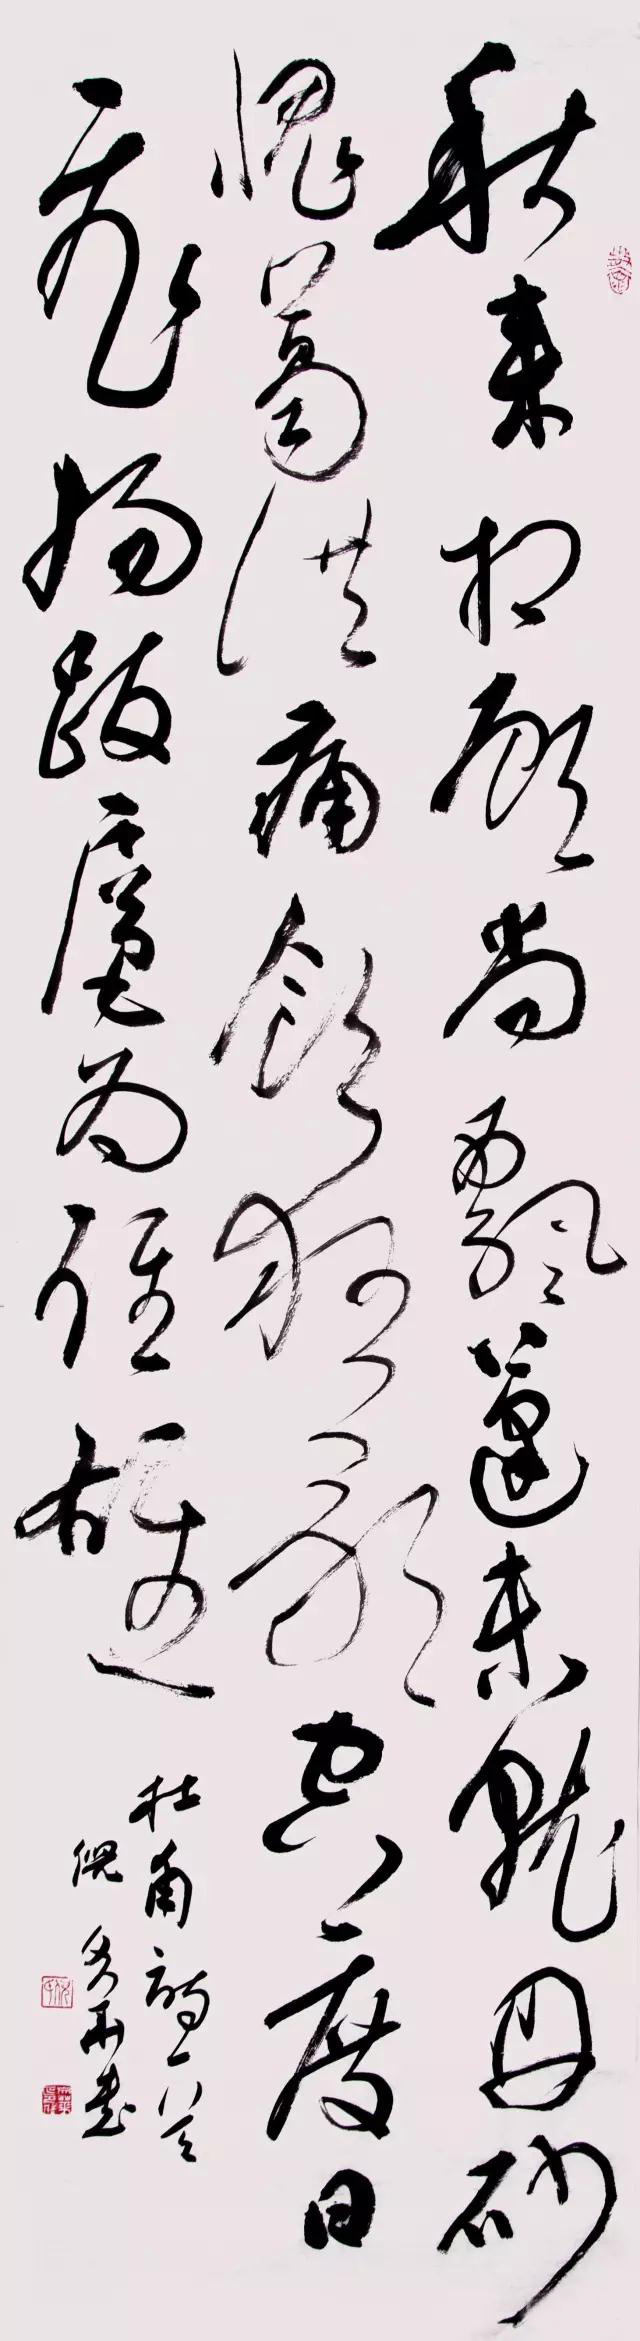 秋来相顾尚飘蓬未就丹砂
愧葛洪痛饮狂歌空度日
飞扬跋扈为谁雄
杜甫诗一首
倪
书